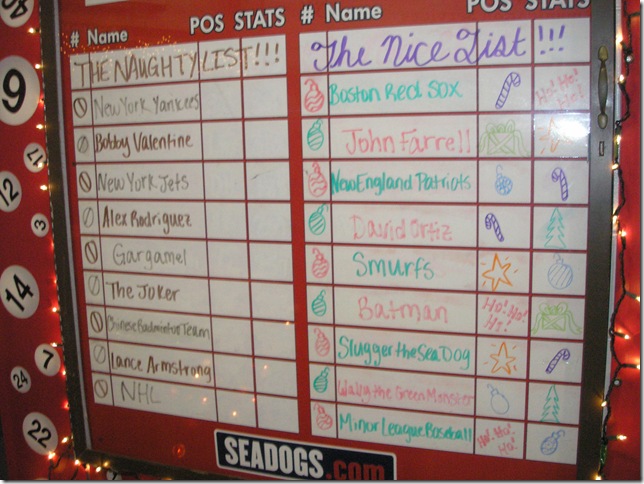 # Name POS STATS
THE NAUGHTY LIST!!!
New York Yankees
Bobby Valentine
New York Jets
Alex Rodriguez
Gargamel
The Joker
Chinese Badminton Team
Lance Armstrong
NHL
# Name POS STATS
The Nice List!!!
Boston Red Sox Ho! Ho! Ho!
John Farrell
New England Patriots
David Ortiz
Smurfs
Batman Ho! Ho! Ho!
Slugger the Sea Dog
Wally the Green Monster
Minor League Baseball Ho! Ho! Ho!
SEADOGS.com
9
4
12
3
14
7
24
22